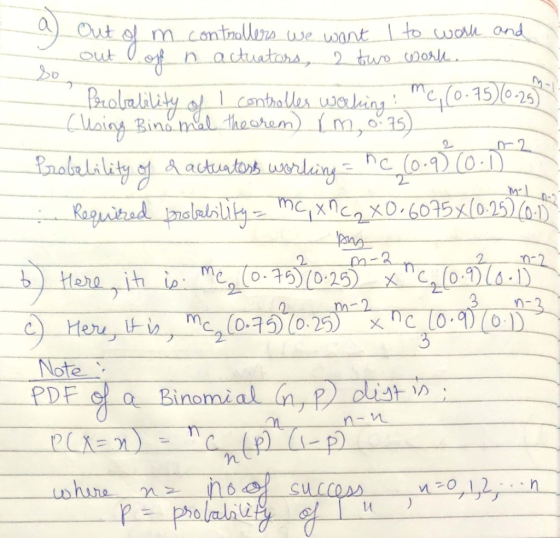 a) Out of m controllers we want 1 to work and
out of n actuators, 2 two work.
So,
Probability of 1 controller working: ᵐC₁(0.75)(0.25)ᵐ⁻¹
(Using Binomal theorem) (m, 0.75)
Probability of 2 actuators working = ⁿC₂(0.9)²(0.1)ⁿ⁻²
∴ Required probability = ᵐC₁ × ⁿC₂ × 0.6075 × (0.25)ᵐ⁻¹(0.1)ⁿ⁻²
Ans
b) Here, it is: ᵐC₂(0.75)²(0.25)ᵐ⁻² × ⁿC₂(0.9)²(0.1)ⁿ⁻²
c) Here, it is, ᵐC₂(0.75)²(0.25)ᵐ⁻² × ⁿC₃(0.9)³(0.1)ⁿ⁻³
Note:-
PDF of a Binomial (n, p) dist is:
P(X=x) = ⁿCₓ(p)ˣ(1-p)ⁿ⁻ˣ
where x = no of success, x=0,1,2,...n
p = probability of 1 "